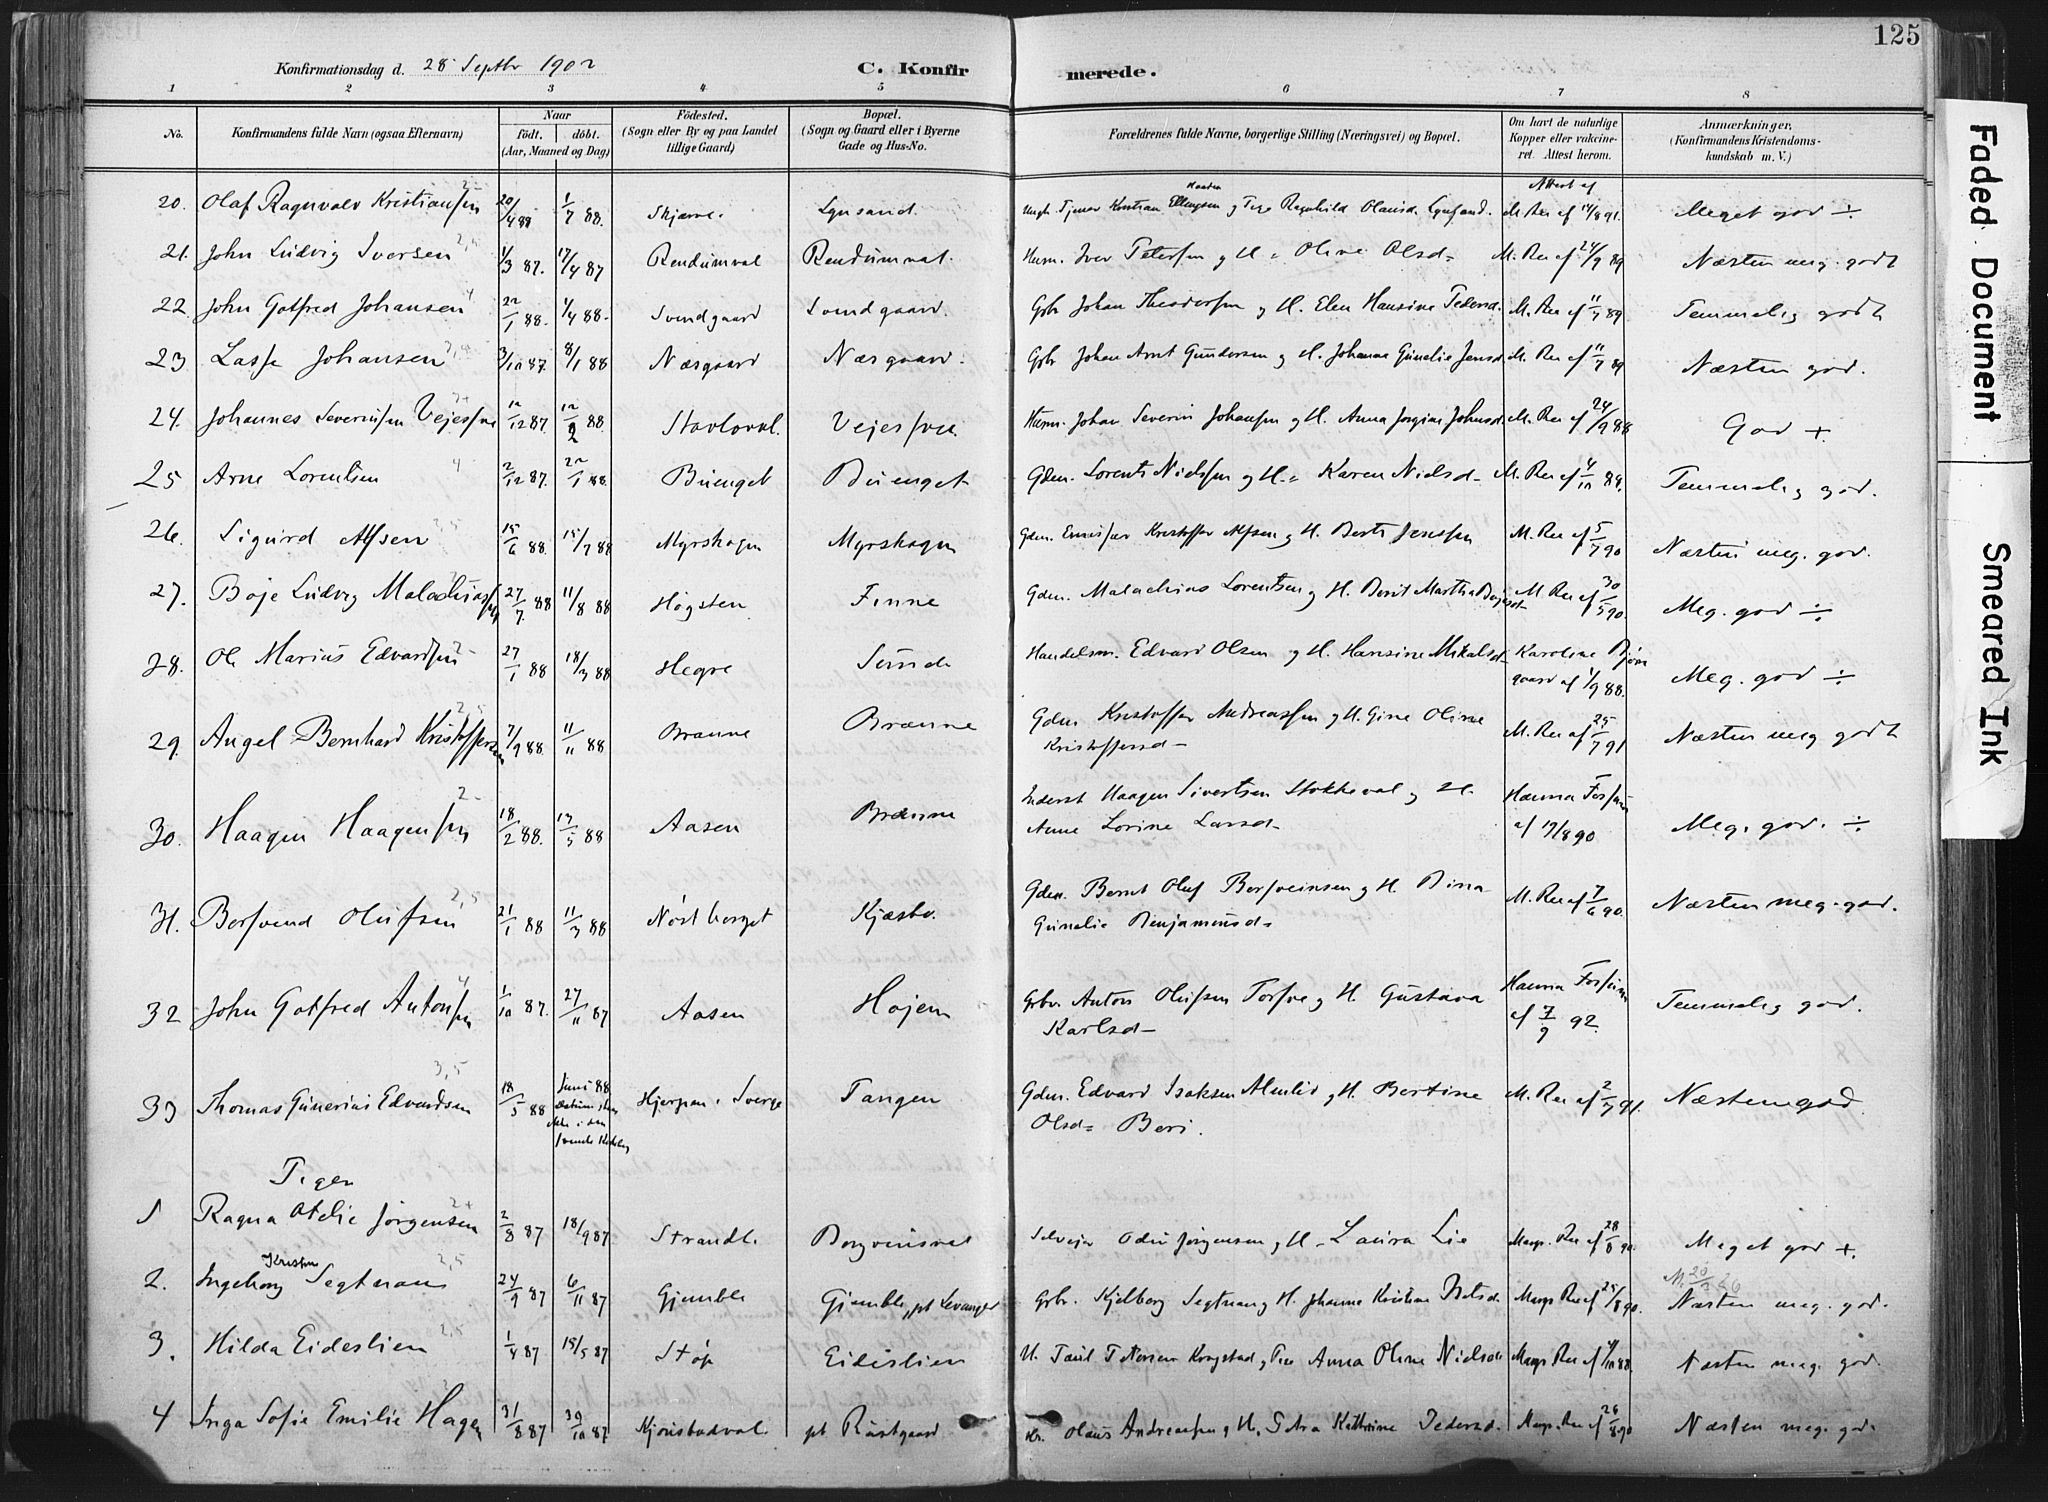 125
Konfirmationsdag d. 28 Septbr 1902
C. Konfirmerede.
1 2 3 4 5 6 7 8
No.
Konfirmandens fulde Navn (ogsaa Efternavn)
Naar
født. døbt.
(Aar, Maaned og Dag)
Födested.
(Sogn eller By og paa Landet
tillige Gaard)
Bopæl.
(Sogn og Gaard eller i Byerne
Gade og Hus-No.
Forældrenes fulde Navne, borgerlige Stilling (Næringsvei) og Bopæl.
Om havt de naturlige
Kopper eller vaccine-
ret. Attest herom.
Anmærkninger,
(Konfirmandens Kristendoms-
kundskab m. V.)
20. Olaf Ragnvald Kristiansen 20/4 88 1/7 88. Skjerve. Lynsand. Attest af M. Ree af 14/8 91. Meget god ÷
21. John Ludvig Iversen 1/3 87. 17/4 87 Rendumval Rendumval. Husm. Iver Petersen og H. Oline Olsd. M. Ree af 24/9 89 Næsten meg. godt
22. John Gotfred Johansen 22/1 88. 1/4 88. Svendgaard Svendgaard. Gbr Johan Theodorsen og H. Elen Hansine Pedersd. M. Ree af 11/7 89 Temmelig godt
23 Lasse Johansen 3/10 87. 8/1 88 Næsgaard Næsgaard. Gbr. Johan Arnt Gundersen og H. Johanna Gunelie Jensd. M. Ree af 11/7 89 Næsten god.
24. Johannes Severinsen Vejessve 12/12 87. 12/2 88. Stavloval. Vejessve. Husm. Johan Severin Johansen og H. Anna Jorgine Johnsd. M. Ree af 24/9 88 God +
25 Arne Lorentsen 2/12 87. 22/1 88. Buenget Buenget Gdm. Lorents Nielssen og H. Karen Nielsd. M. Ree af 4/10 89. Temmelig god.
26. Sigurd Alfsen 15/6 88. 15/7 88 Myrskogen Myrskogen Gdm. Kristoffer Alfsen og H. Berit Jenssen M. Ree af 5/7 90 Næsten meg. god.
27. Boje Ludvig Malachiassen 27/7. 88 11/8 88 Høgsten Finne Gdm. Malachias Lorentsen og H. Berit Martha Bojesd. M. Ree af 30/5 90. Meg. god ÷
28. Ole Marius Edvardsen 27/1 88 18/3 88 Hegre Sunde Handelsm. Edvard Olsen og H. Hansine Mikalsd. Karoline Bjørngaard af 1/9 88. Meg. god ÷
29. Angel Bernhard Kristoffersen 7/9 88. 11/11 88 Brænne Brænne Gdm. Kristoffer Andreassen og H. Gine Oline
Kristoffersd. M. Ree af 25/7 91 Næsten meg godt
30. Haagen Haagensen 18/2 88. 13/5 88 Aasen Brænne Inderst Haagen Sivertsen Stokkeval og H.
Anne Lorine Larsd. Hanna Forsum af 19/8 90 Meg. god. ÷
31. Borsvend Olufsen 21/1 88 11/3 88 Nøstberget Kjæsbo. Gdm. Bernt Oluf Borsveinsen og H. Dina
Gunelie Benjaminsd. M. Ree af 7/6 90. Næsten meg. god.
32 John Gotfred Antonsen 1/10 87. 27/11 87 Aasen Hojem Gbr. Anton Olufsen Torsve og H. Gustava
Karlsd. Hanna Forsum af 7/9 92. Temmelig god.
33 Thomas Gunerius Edvardsen 18/5 88 Juni 88 Hjerpen i Sverge Tangen Gdm. Edvard Isaksen Almlid og H. Bertine
Olsd. Beri. M. Ree af 2/7 91. Næsten god
Piger
1 Ragna Otelie Jørgensen 2/8 87 18/9 87 Strandl. Borgvinsvet Selvejer Odin Jørgensen og H. Laura Lie Marg. Ree af 28/8 90. Meget god +.
2. Ingeborg Kristine Segtnan 24/9 87 6/11 87 Gjemble Gjemble, pt Levanger Gbr. Kjelborg Segtnan og H. Johanne Kristine Nilsd. Marg Ree af 25/8 90. Næsten meg. god.
3. Hilda Eideslien 1/4 87 15/5 87 Støp Eideslien U. Paul Petersen Krogstad og Pige Anna Oline Nielsd. Marg Ree af 4/10 88. Næsten meg. god.
4 Inga Sofie Emilie Hagen 31/8 87 30/10 87 Kjønstadval. pt Rostgaard Olaus Andreassen og H. Petra Kathrine Pedersd. Marg. Ree af 26/8 90 Næsten meg. god.
Faded Document
Smeared Ink